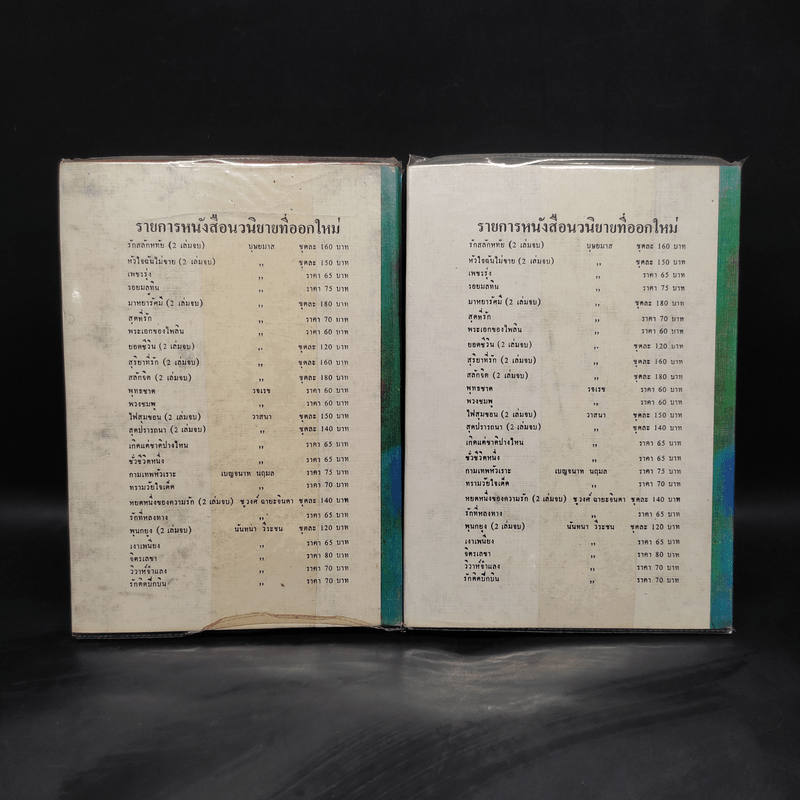 รายการหนังสือนวนิยายที่ออกใหม่
รักสลักหทัย (2 เล่มจบ) บุษยมาส ชุดละ 160 บาท
หัวใจฉันไม่ขาย (2 เล่มจบ) ,, ชุดละ 150 บาท
เพชรรุ้ง ,, ราคา 65 บาท
รอยมลทิน ,, ราคา 75 บาท
มาหยารัศมี (2 เล่มจบ) ,, ชุดละ 180 บาท
สุดที่รัก ,, ราคา 70 บาท
พระเอกของไพลิน ,, ราคา 60 บาท
ยอดชีวิน (2 เล่มจบ) ,, ชุดละ 120 บาท
สุริยาที่รัก (2 เล่มจบ) ,, ชุดละ 160 บาท
สลักจิต (2 เล่มจบ) ,, ชุดละ 180 บาท
พุทธชาด รจเรข ราคา 60 บาท
พวงชมพู ,, ราคา 60 บาท
ไฟสุมขอน (2 เล่มจบ) วาสนา ชุดละ 150 บาท
สุดปรารถนา (2 เล่มจบ) ,, ชุดละ 140 บาท
เกิดแต่ชาติปางไหน ,, ราคา 65 บาท
ชั่วชีวิตหนึ่ง ,, ราคา 65 บาท
กามเทพหัวเราะ เบญจนาท นฤมล ราคา 75 บาท
ทรามวัยใจเด็ด ,, ราคา 70 บาท
หยดหนึ่งของความรัก (2 เล่มจบ) ชูวงศ์ ฉายะจินดา ชุดละ 140 บาท
รักที่หลงทาง ,, ราคา 65 บาท
(2 เล่มจบ) นันทนา วีระชน ชุดละ 120 บาท
เงาเพนียง ,, ราคา 65 บาท
จิตรเลขา ,, ราคา 80 บาท
วิวาห์จำแลง ,, ราคา 70 บาท
รักติดปีกบิน ,, ราคา 70 บาท
รายการหนังสือนวนิยายที่ออกใหม่
รักสลักหทัย (2 เล่มจบ) บุษยมาส ชุดละ 160 บาท
หัวใจฉันไม่ขาย (2 เล่มจบ) ,, ชุดละ 150 บาท
เพชรรุ้ง ,, ราคา 65 บาท
รอยมลทิน ,, ราคา 75 บาท
มาหยารัศมี (2 เล่มจบ) ,, ชุดละ 180 บาท
สุดที่รัก ,, ราคา 70 บาท
พระเอกของไพลิน ,, ราคา 60 บาท
ยอดชีวิน (2 เล่มจบ) ,, ชุดละ 120 บาท
สุริยาที่รัก (2 เล่มจบ) ,, ชุดละ 160 บาท
สลักจิต (2 เล่มจบ) ,, ชุดละ 180 บาท
พุทธชาด รจเรข ราคา 60 บาท
พวงชมพู ,, ราคา 60 บาท
ไฟสุมขอน (2 เล่มจบ) วาสนา ชุดละ 150 บาท
สุดปรารถนา (2 เล่มจบ) ,, ชุดละ 140 บาท
เกิดแต่ชาติปางไหน ,, ราคา 65 บาท
ชั่วชีวิตหนึ่ง ,, ราคา 65 บาท
กามเทพหัวเราะ เบญจนาท นฤมล ราคา 75 บาท
ทรามวัยใจเด็ด ,, ราคา 70 บาท
หยดหนึ่งของความรัก (2 เล่มจบ) ชูวงศ์ ฉายะจินดา ชุดละ 140 บาท
รักที่หลงทาง ,, ราคา 65 บาท
(2 เล่มจบ) นันทนา วีระชน ชุดละ 120 บาท
เงาเพนียง ,, ราคา 65 บาท
จิตรเลขา ,, ราคา 80 บาท
วิวาห์จำแลง ,, ราคา 70 บาท
รักติดปีกบิน ,, ราคา 70 บาท